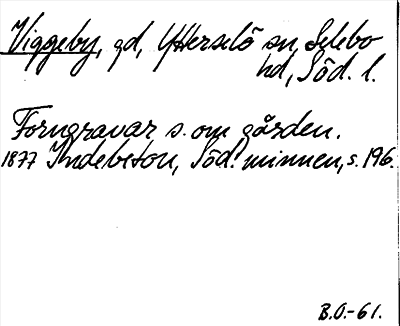 Viggeby, gd, Ytterselö sn, Selebo
hd, Söd. l.
Forngravar s. om gården.
1877 Indebetou, Söd. minnen, s. 196.
B.O.-61.